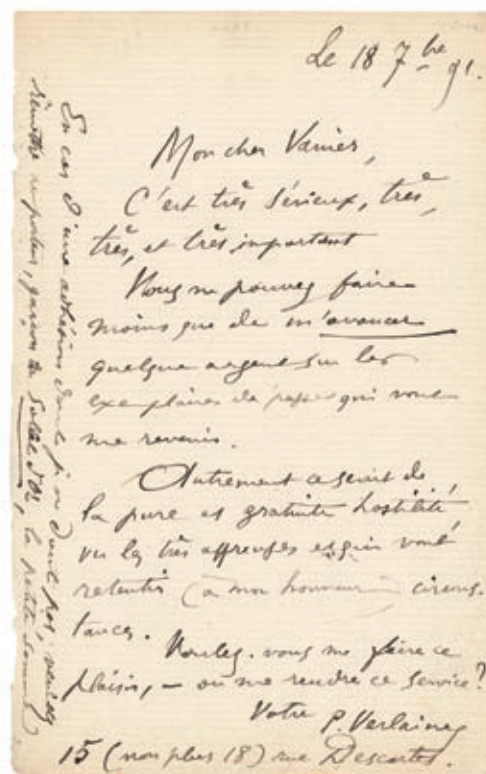 Le 18 7bre 91.
Mon cher Vanier,
C'est très sérieux, très,
très, et très important
Vous ne pouvez faire
moins que de m'avancer
quelque argent sur les
exemplaires de passe qui vont
me revenir.
Autrement ce serait de
la pure et gratuite hostilité,
vu les très affreuses et qui vont
retentir (à mon honneur) circons-
tances.
Voulez-vous me faire ce
plaisir, – ou me rendre ce service?
Votre P. Verlaine
15 (non plus 18) rue Descartes.
En cas d'une adhésion dont je ne doute pas, veuillez
remettre au porteur, garçon du Soleil d'Or, la petite somme